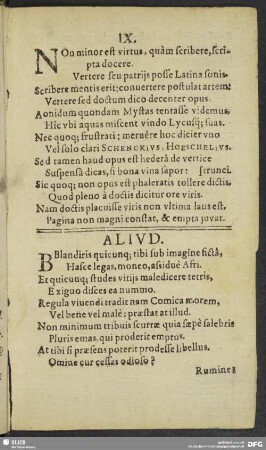 IX.
NOn minor est virtus, quàm scribere, scri-
pta docere.
Vertere seu patrijs posse Latina sonis.
Scribere mentis erit; conuertere postulat artem:
Vertere sed doctum dico decenter opus.
Aonidum quondam Mystas tentasse videmus,
Hic vbi aquas miscent vindo Lycusq; suas.
Nec quoq; frustrati; meruêre hoc dicier vno
Vel solo clari SCHENCKIVS, HOESCHELIVS.
Sed tamen haud opus est hederâ de vertice
Suspensâ dicas, si bona vina sapor:
Sic quoq; non opus est phaleratis tollere dictis,
Quod pleno â doctis dicitur ore viris.
Nam doctis placuisse viris non vltima laus est.
Pagina non magni constat, & empta juvat.
ALIVD.
BLandiris quicunq; tibi sub imagine fictâ,
Hasce legas, moneo, assiduè Afri.
Et quicunq; studes vitijs maledicere tetris,
Exiguo disces ea nummo.
Regula viuendi tradit nam Comica morem,
Vel bene vel malè: præstat at illud.
Non minimum tribuis scurræ quia sæpè salebris
Pluris emas, qui proderit emptus.
At tibi si præsens poterit prodesse libellus,
Omine cur cessas odioso?
Rumine